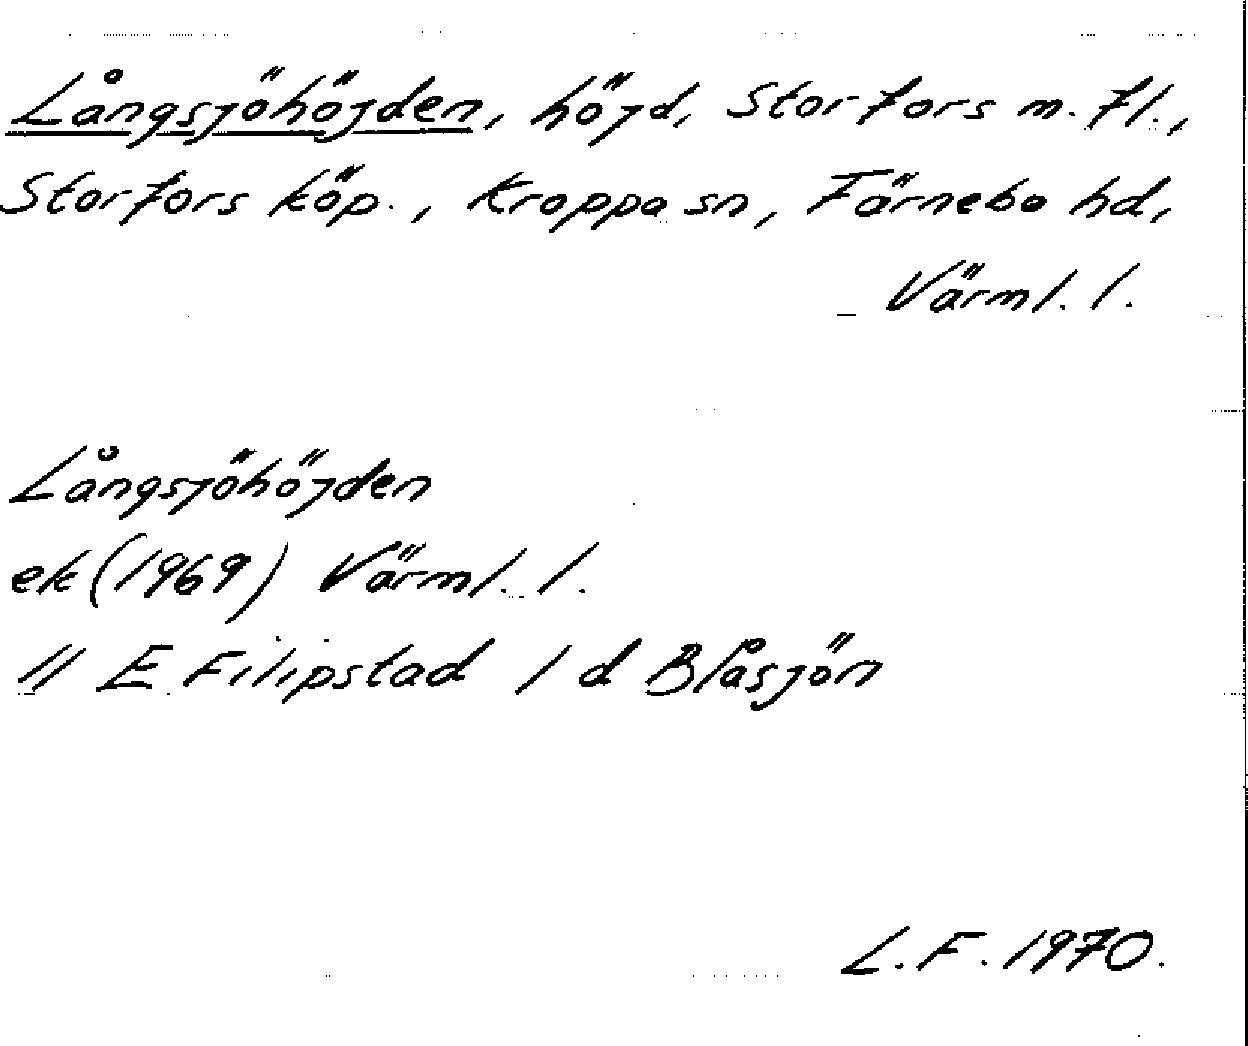 Långsjöhöjden, höjd, Storfors m. fl.,
Storfors köp., Kroppa sn, Färnebo hd,
Värml. l.
Långsjöhöjden
ek (1969) Värml. l.
11 E Filipstad 1 d Blåsjön
L. F. 1970.